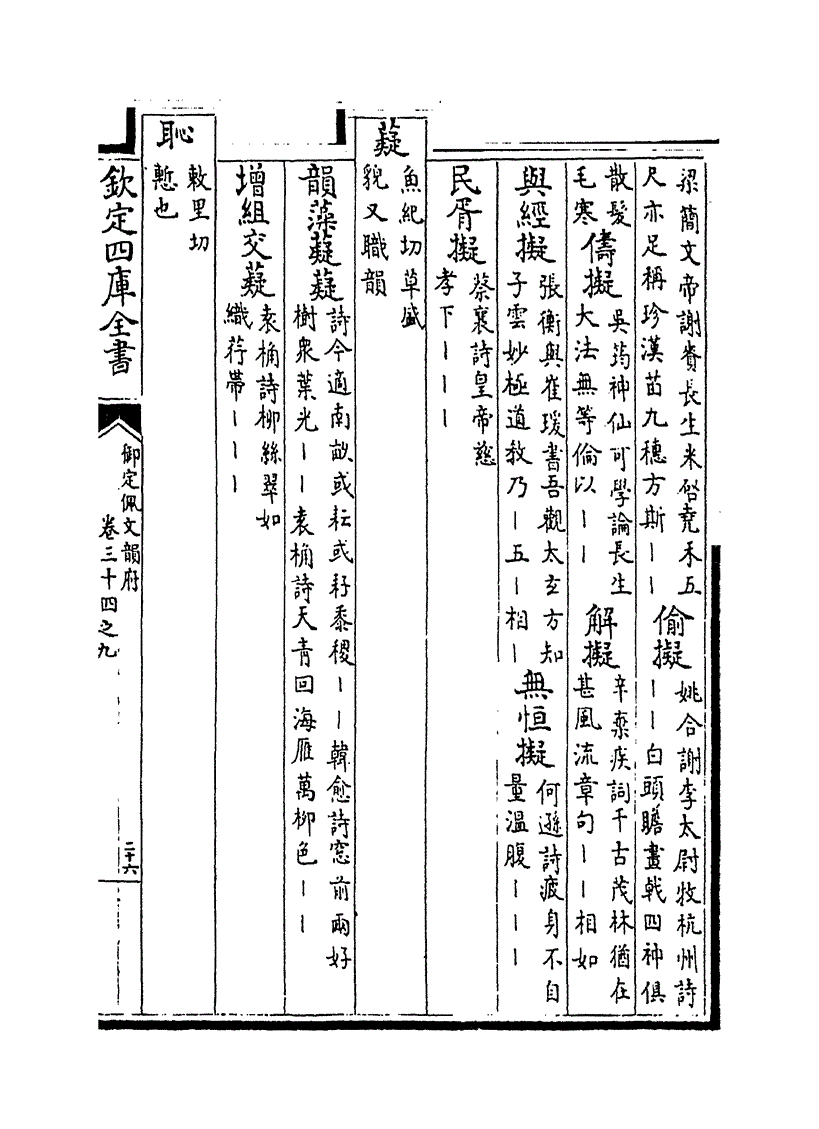 梁簡文帝謝賚長生米啓堯禾五
尺亦足稱珍漢苗九穗方斯｜｜
偷擬
姚合謝李太尉牧杭州詩
｜｜白頭瞻畫戟四神俱
散髮
毛寒
儔擬
吳筠神仙可學論長生
大法無等倫以｜｜
解擬
辛棄疾詞千古茂林猶在
甚風流章句｜｜相如
與經擬
張衡與崔瑗書吾觀太玄方知
子雲妙極道教乃｜五｜相｜
無恒擬
何遜詩疲身不自
量溫腹｜｜｜
民胥擬
蔡襄詩皇帝慈
孝下｜｜｜
薿
魚紀切草盛
貌又職韻
韻藻薿薿
詩今適南畝或耘或耔黍稷｜｜韓愈詩窓前兩好
樹衆葉光｜｜袁桷詩天青回海雁萬柳色｜｜
增組交薿
袁桷詩柳絲翠如
織荇帶｜｜｜
恥
敕里切
慙也
欽定四庫全書
御定佩文韻府
卷三十四之九
二十六